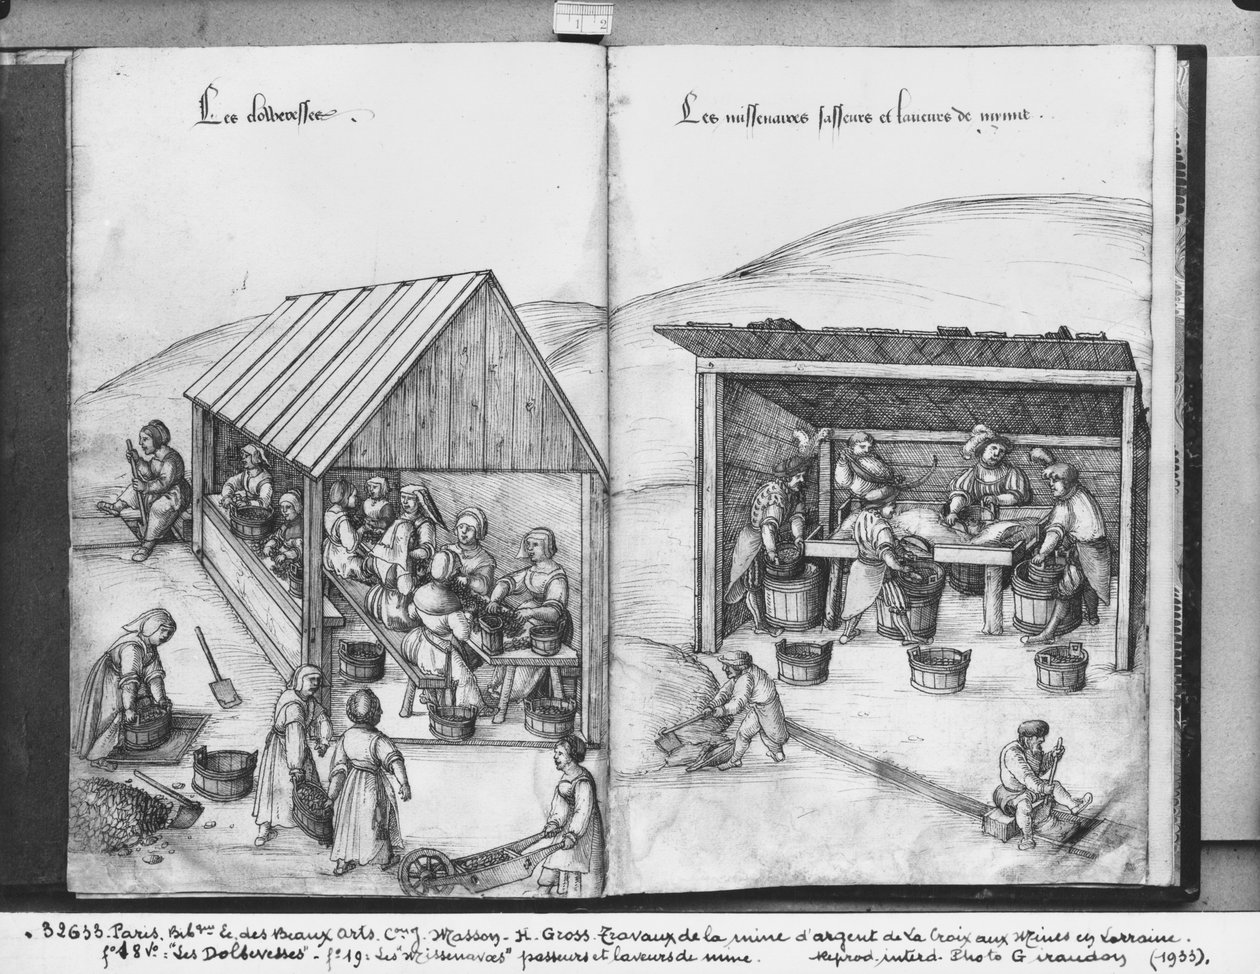 1 2
Les dolberesses.
Les missenaires sasseurs et laueurs de mynne.
32633. Paris. Bibque Ec. des Beaux Arts. Cong. Masson - H. Gross. Travaux de la mine d'argent de La Croix aux Mines en Lorraine.
fo 18 vo: "Les Dolberesses" - fo 19: Les "Missenaires" passeurs et laveurs de mine. Reprod. interd. Photo Giraudon (1933).